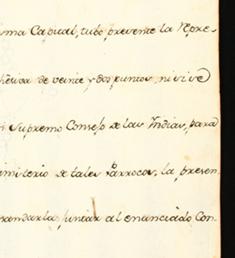 ma Capital, tubo presente la Repre-
de veinte y dos puntos, ni vive
Supremo Consejo de las Indias, para
ministerio de tales Parrocos, la presen
mandarla juntar al enunciado Con-